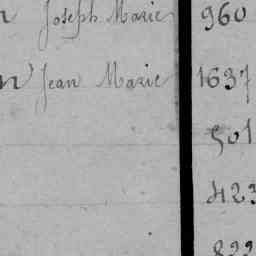 Joseph Marie 960
Jean Marie 1637
501
423
822